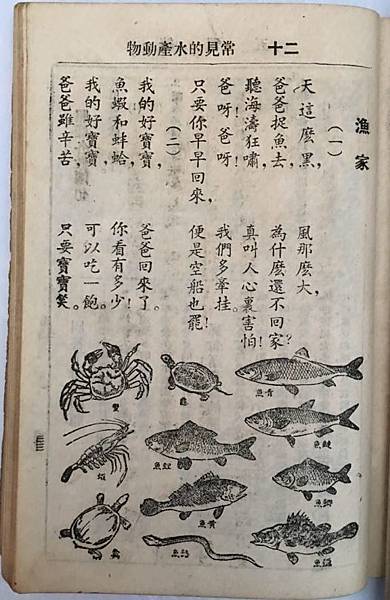 二十 常見的水產動物
漁家
(一)
天這麼黑,風那麼大,
爸爸捉魚去,為什麼還不回家?
聽海濤狂嘯,真叫人心裏害怕!
爸呀!爸呀!我們多牽挂。
只要你早早回來,便是空船也罷!
(二)
我的好寶寶,爸爸回來了。
魚蝦和蚌蛤,你看有多少!
我的好寶寶,可以吃一飽。
爸爸雖辛苦,只要寶寶笑。
青魚
鰱魚
鯽魚
龜
鯉魚
黃魚
蟹